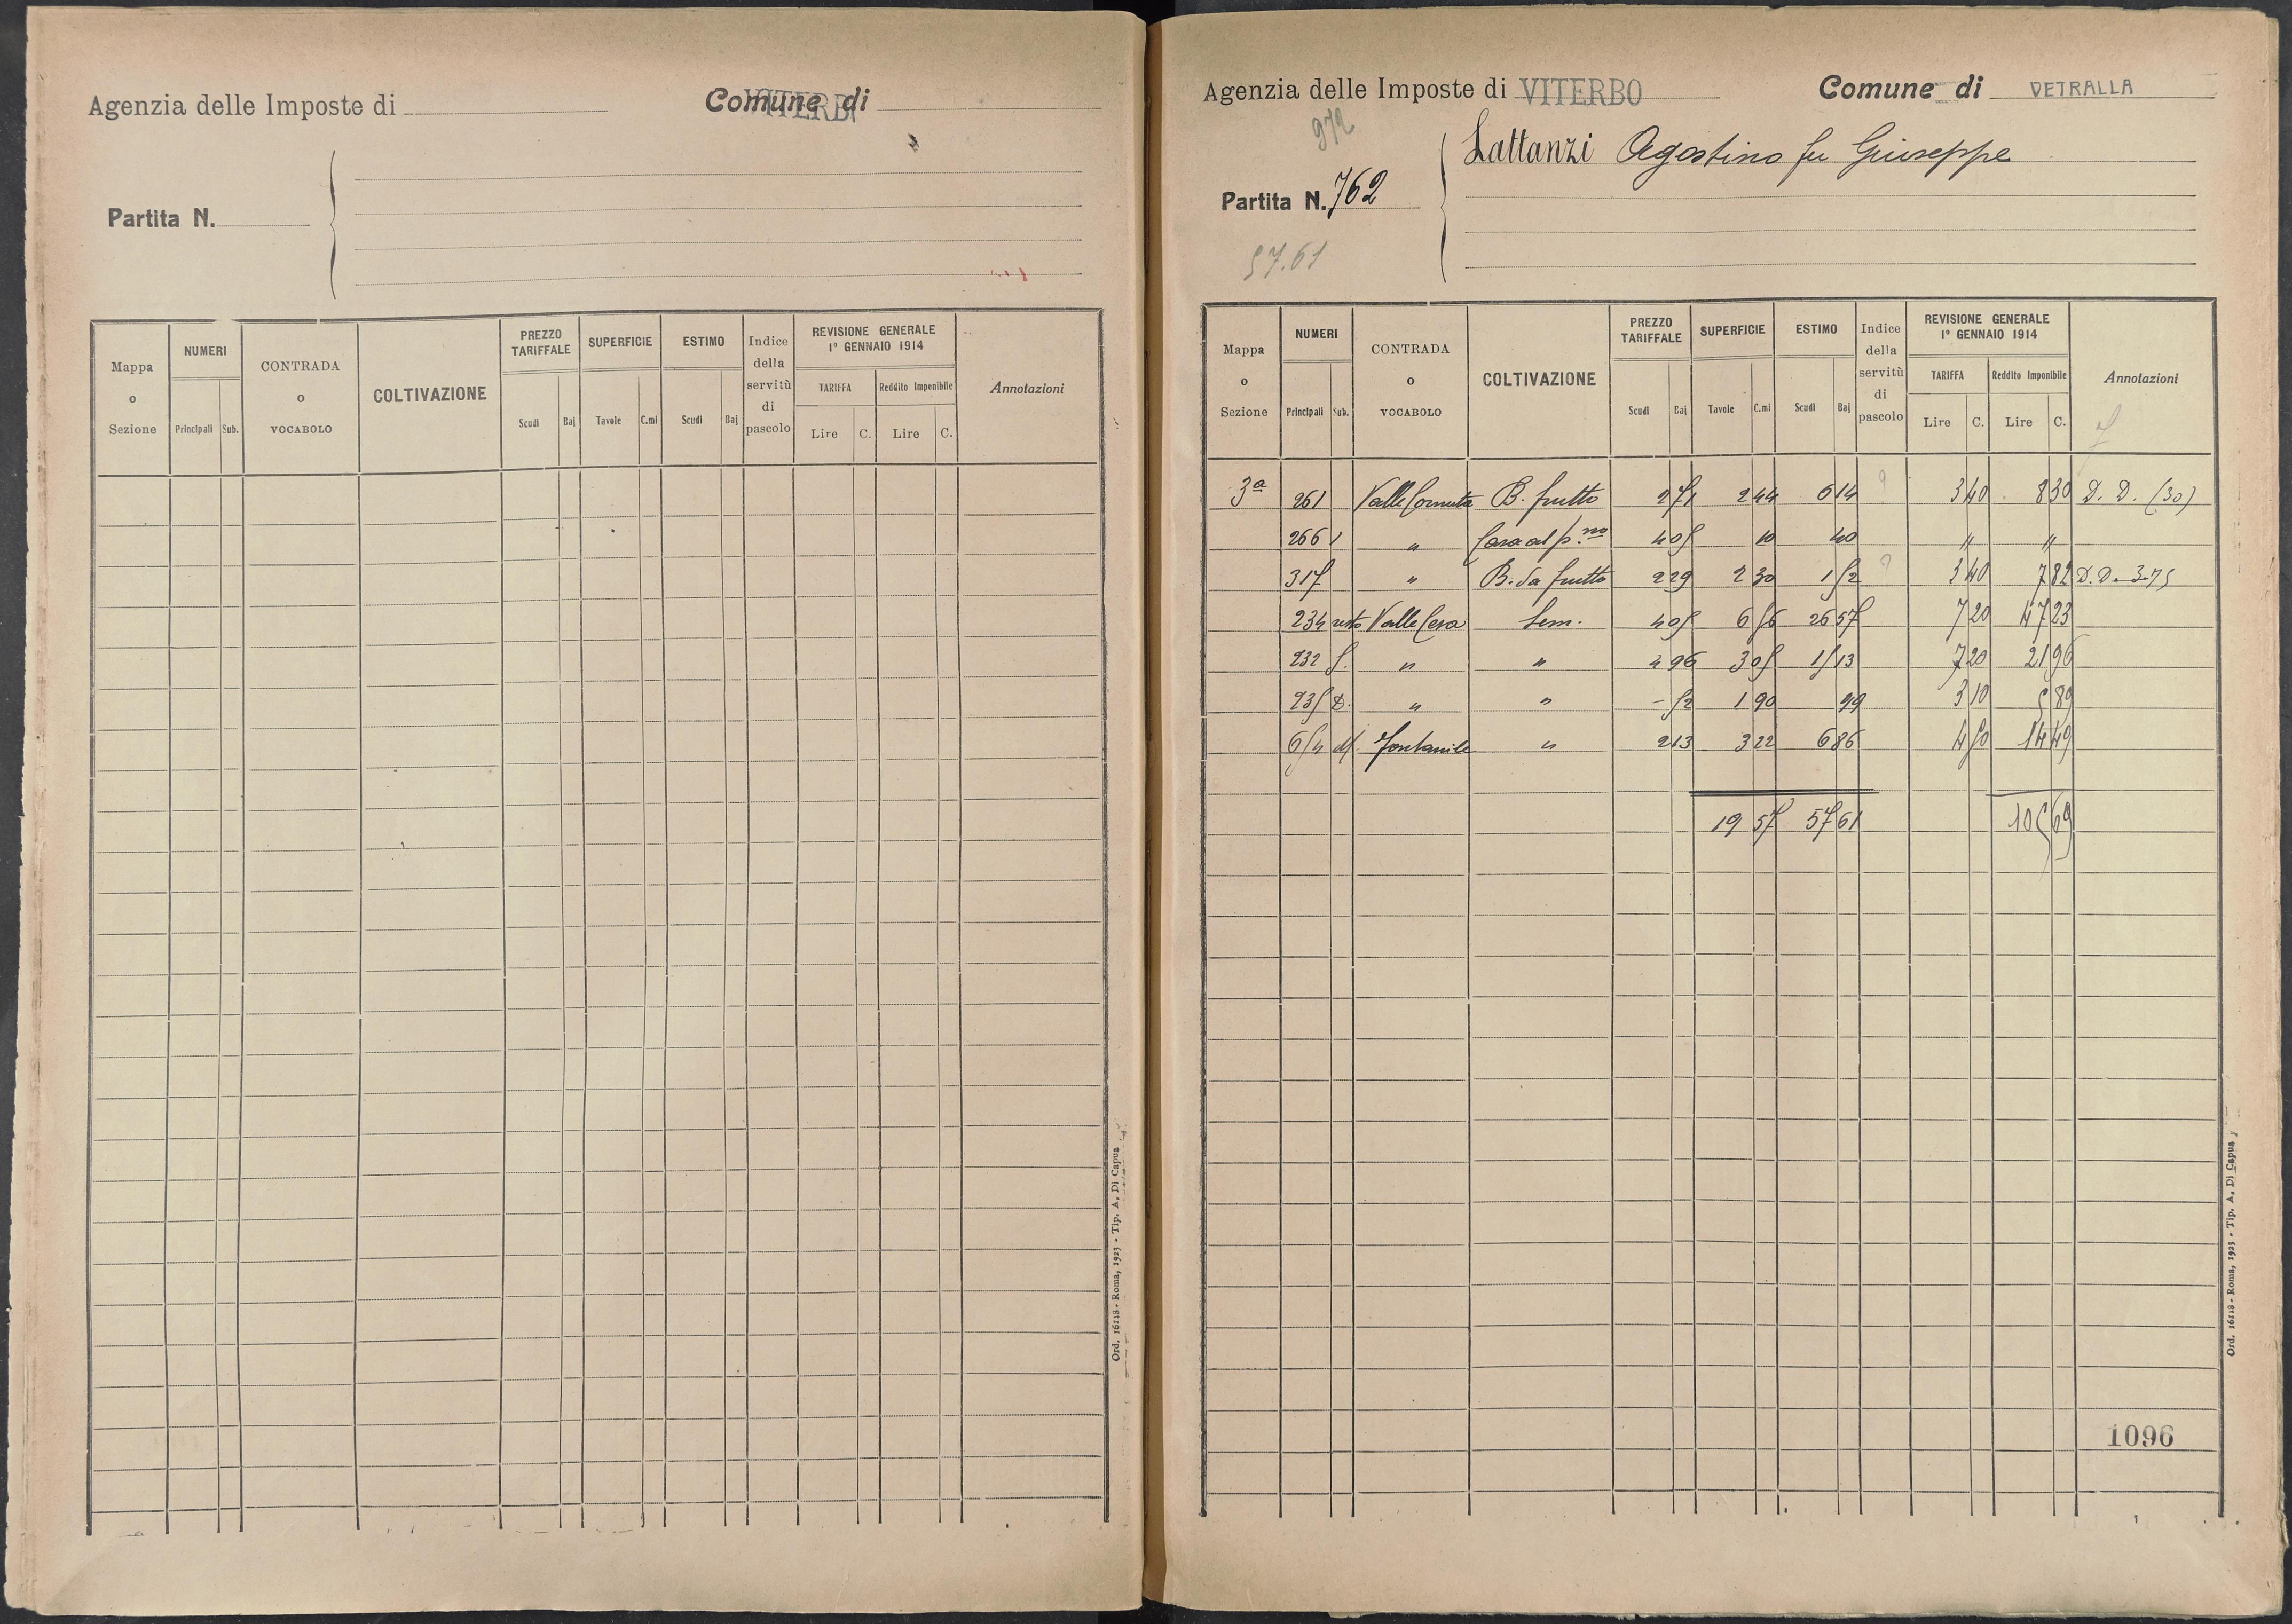 Agenzia delle Imposte di
Comune di
VITERB
Partita N.
Mappa o Sezione
NUMERI
Principali Sub.
CONTRADA o VOCABOLO
COLTIVAZIONE
PREZZO TARIFFALE
Scudi Baj
SUPERFICIE
Tavole C.mi
ESTIMO
Scudi Baj
Indice della servitù di pascolo
REVISIONE GENERALE
1° GENNAIO 1914
TARIFFA Reddito Imponibile
Lire C. Lire C.
Annotazioni
Ord. 16118 - Roma, 1923 - Tip. A. Di Capua
Agenzia delle Imposte di VITERBO
Comune di VETRALLA
972
Partita N. 762
Lattanzi Agostino fu Giuseppe
57.61
Mappa o Sezione
NUMERI
Principali Sub.
CONTRADA o VOCABOLO
COLTIVAZIONE
PREZZO TARIFFALE
Scudi Baj
SUPERFICIE
Tavole C.mi
ESTIMO
Scudi Baj
Indice della servitù di pascolo
REVISIONE GENERALE
1° GENNAIO 1914
TARIFFA Reddito Imponibile
Lire C. Lire C.
Annotazioni
3ª 261 Valle Cornuta B. frutto 2 51 2 44 6 14 3 40 8 30 D. D. (30)
266 1 " Casa al p.no 4 05 10 40 " "
317 " B. da frutto 2 29 2 30 3 40 7 82 D. D. 3.75
234 resto Valle Cesa Sem. 4 05 6 56 26 57 7 20 47 23
232 " " 4 96 3 05 15 13 7 20 21 96
235 " " - 52 1 90 99 3 10 5 89
654 Fontanile " 2 13 3 22 6 86 4 50 14 49
19 57 57 61 105 69
1096
Ord. 16118 - Roma, 1923 - Tip. A. Di Capua